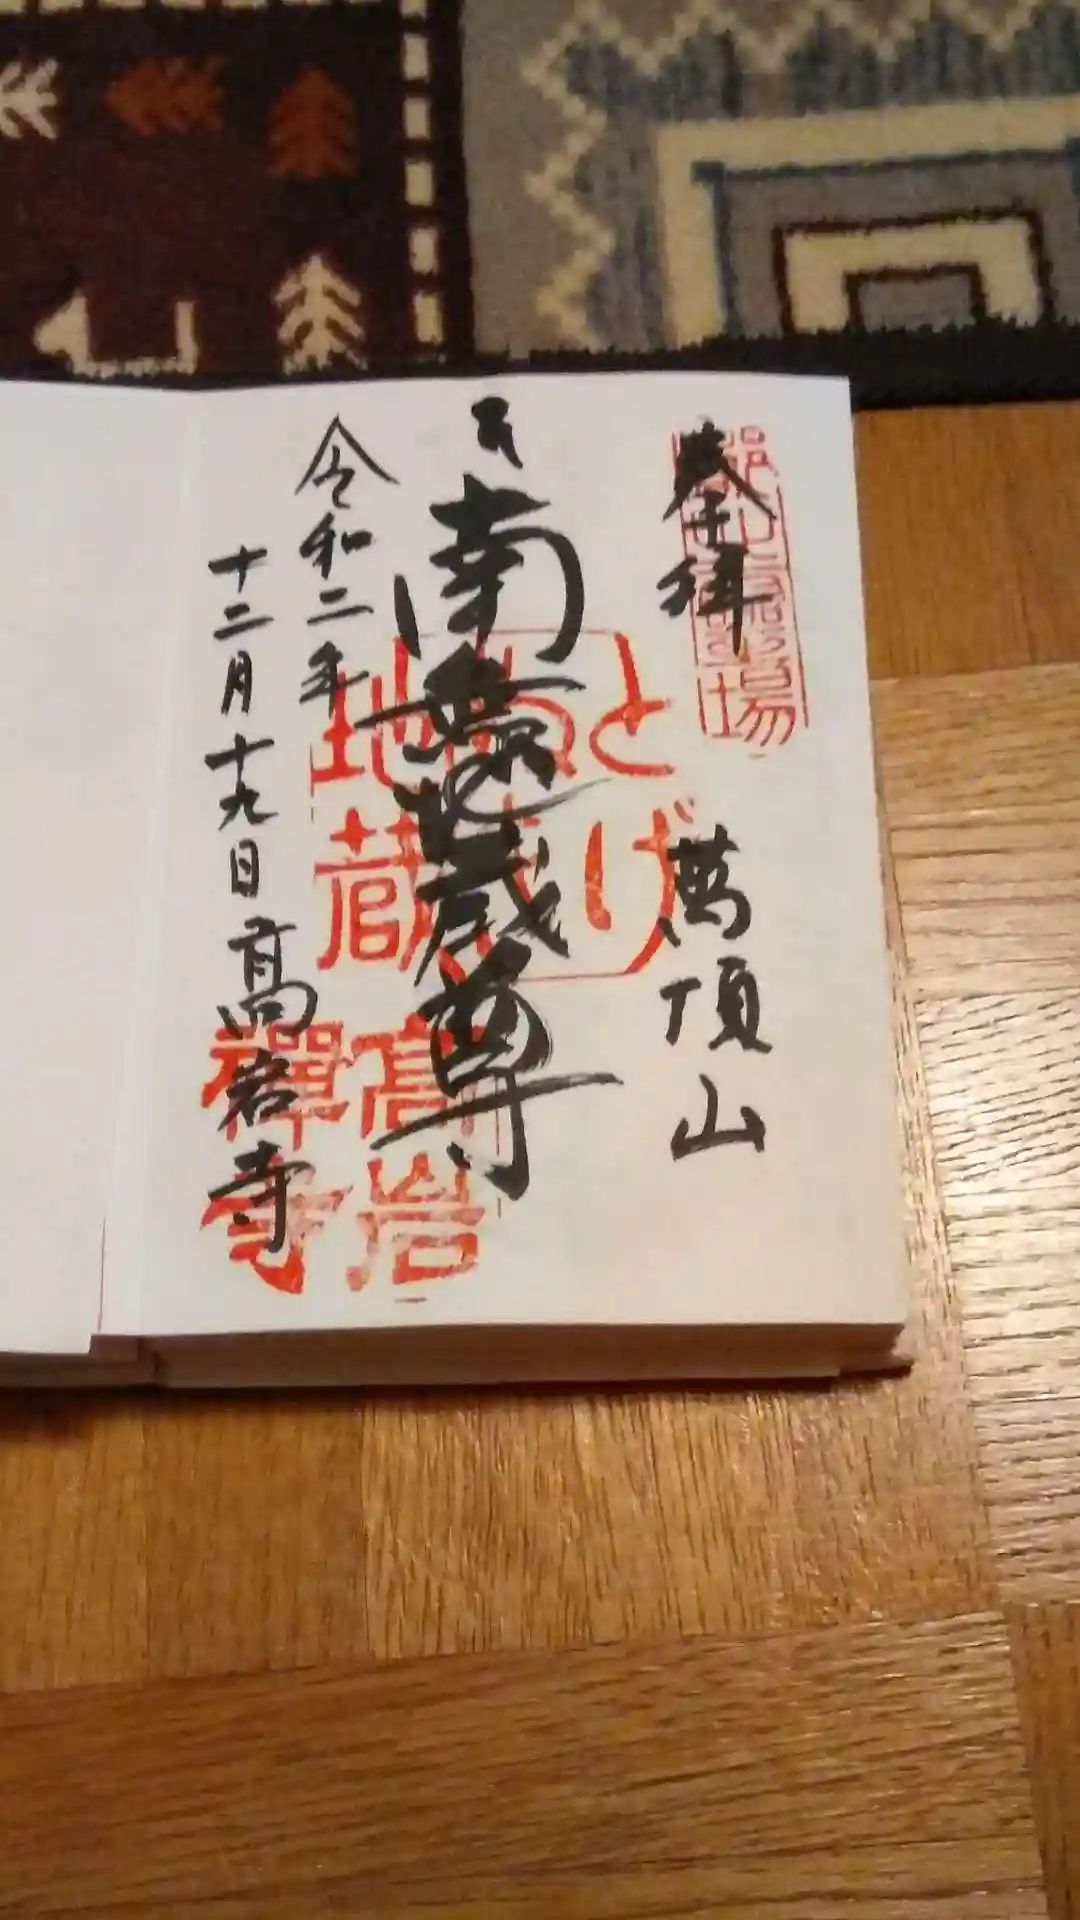 奉拝
萬頂山
南無地蔵尊
令和二年
十二月十九日
高岩寺
とげぬき
地蔵
高岩
禅寺